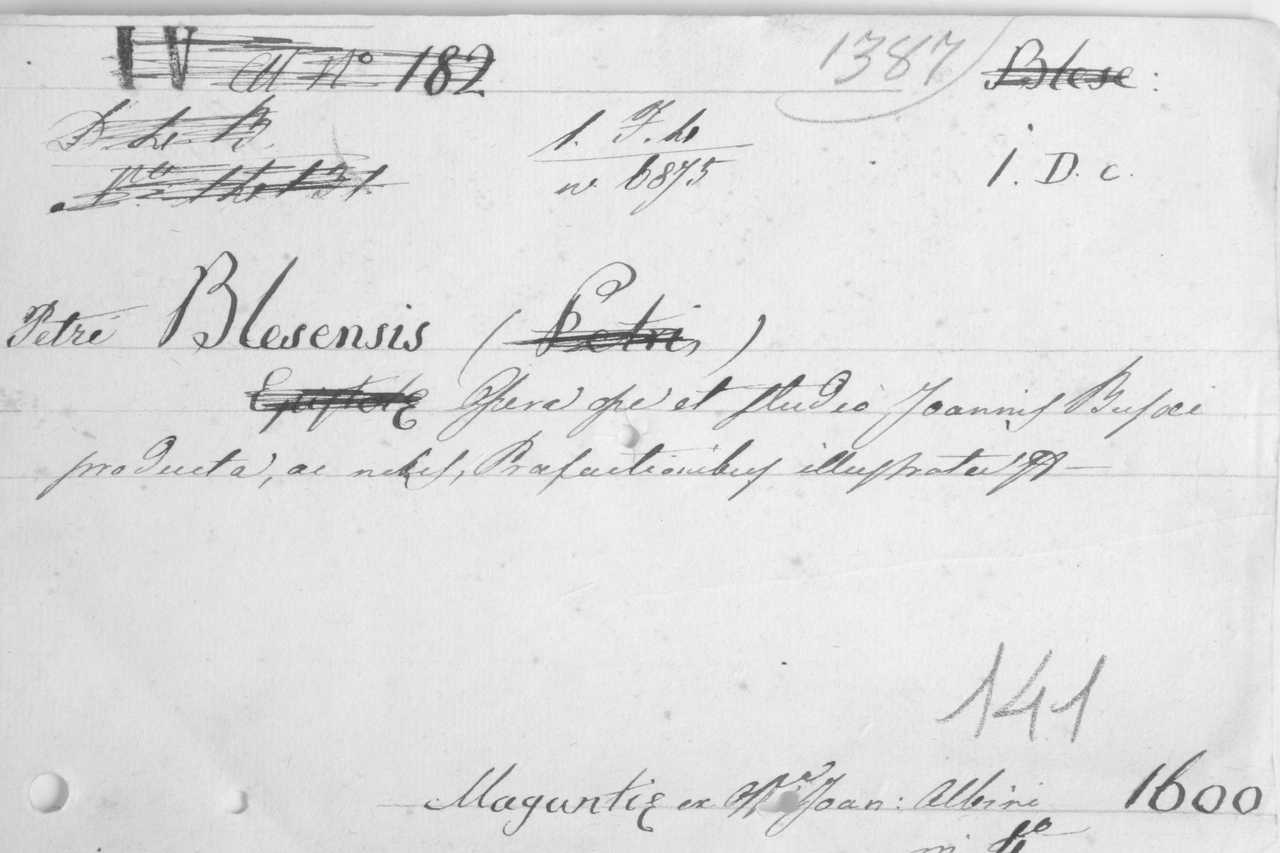 IV N° 182
1387
Blese:
1. F. h
n 6875
1. D. c.
Petri Blesensis (Petri)
Epistolę Opera ope et studio Joannis Busæi
producta, ac notis, Præfactionibus illustrata
141
Maguntię ex Joan: Albini 1600
in 4°